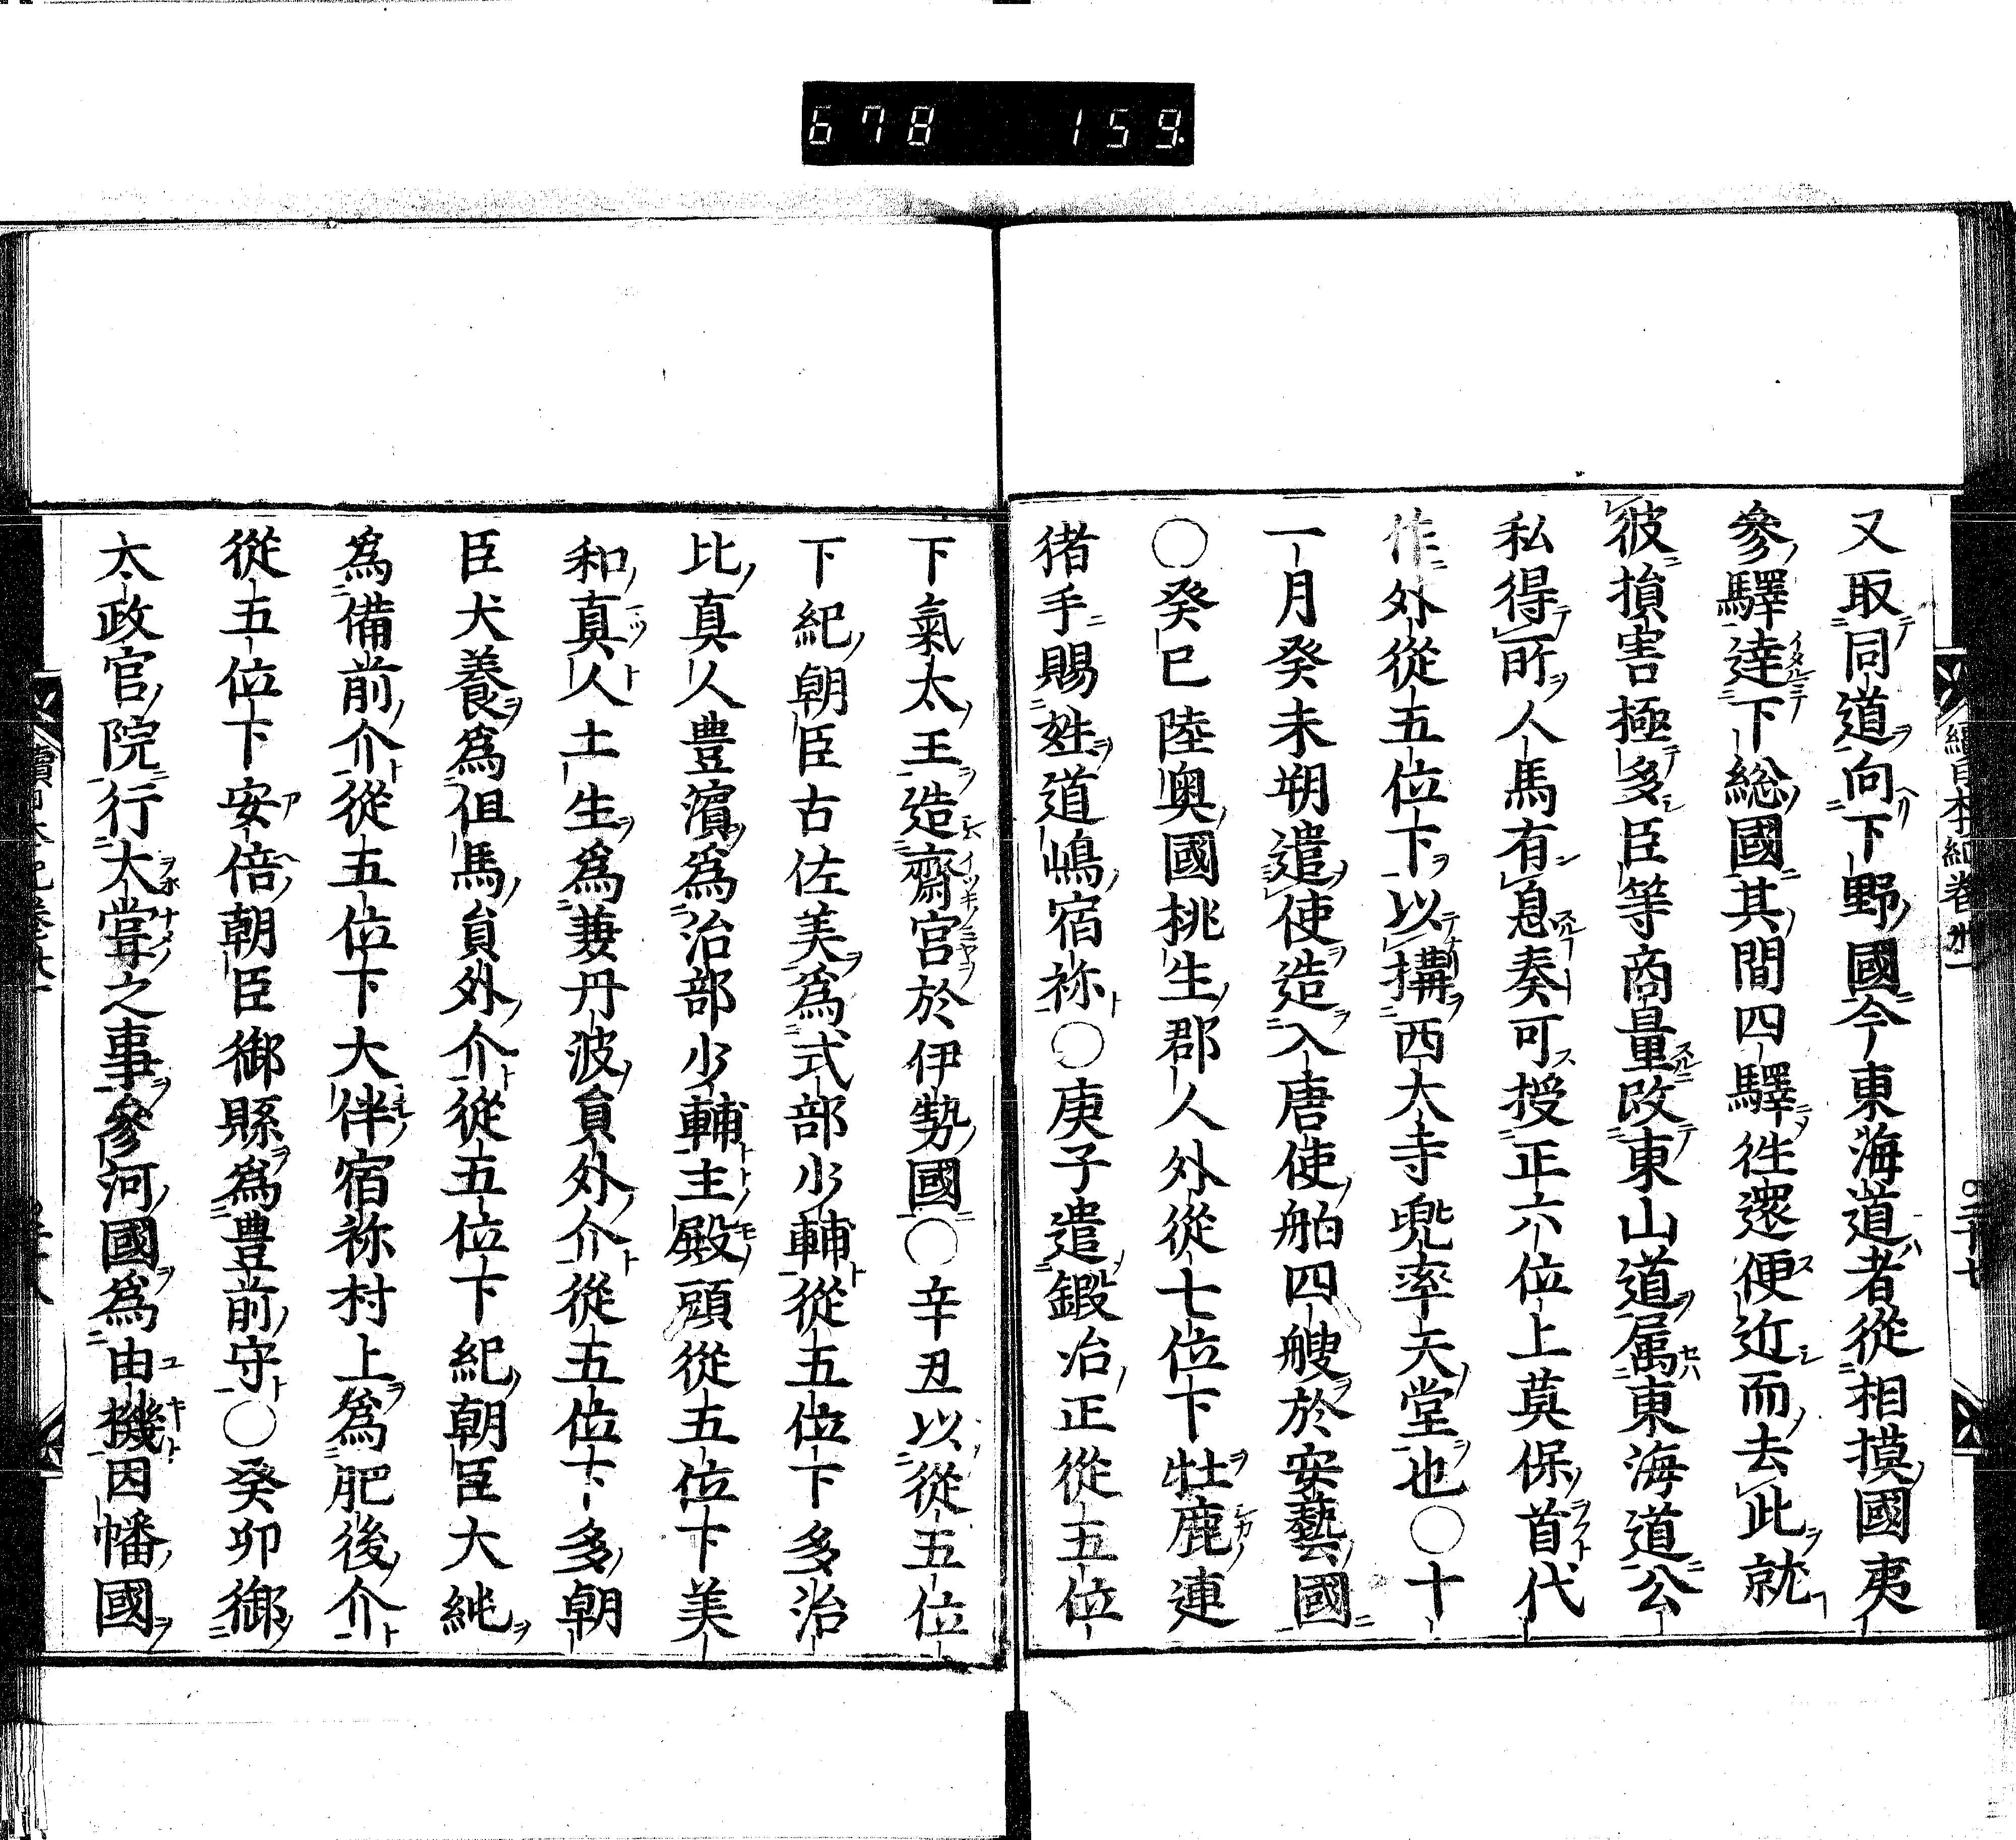 678 159.
又取同道向下野國今東海道者從相摸國夷
參驛達下総國其間四驛徃還便近而去此就
彼損害極多臣等商量改東山道属東海道公
私得所人馬有息奏可授正六位上莫保首代
作外從五位下以搆西大寺兜率天堂也〇十
一月癸未朔遣使造入唐使舶四艘於安藝國
〇癸巳陸奥國桃生郡人外從七位下牡鹿連
猪手賜姓道嶋宿祢〇庚子遣鍛冶正從五位
下氣太王造齋宮於伊勢國〇辛丑以從五位
下紀朝臣古佐美爲式部少輔從五位下多治
比真人豊濵爲治部少輔主殿頭從五位下美
和真人土生爲兼丹波負外介從五位下多朝
臣犬養爲但馬負外介從五位下紀朝臣大純
爲備前介從五位下大伴宿祢村上爲肥後介
從五位下安倍朝臣御縣爲豊前守〇癸卯御
太政官院行大甞之事參河國爲由機因幡國